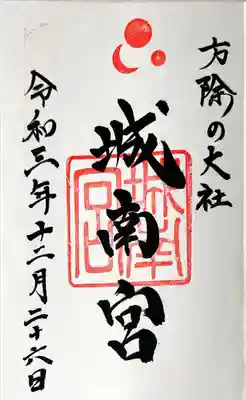 方除の大社
城南宮
令和三年十二月二十六日